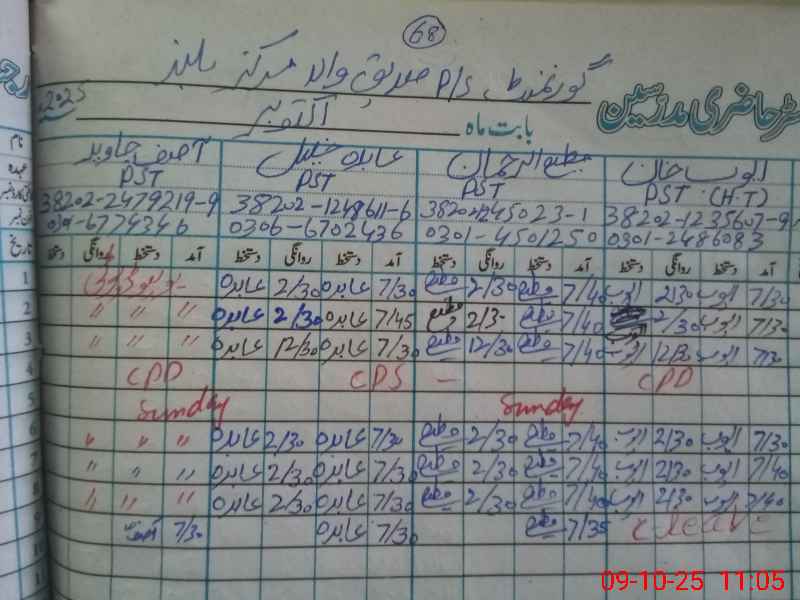 68
گورنمنٹ P/S صدیق والہ مرکز بلیز
رجسٹر حاضری مدرسین
بابت ماہ اکتوبر 2025
ایوب خان مطیع الرحمان عابدہ خلیل آصف جاوید
PST (H.T) PST PST PST
38202-1235607-9 38202-1245023-1 38202-1248611-6 38202-2479219-9
0301-2486083 0301-4501250 0306-6702436
نام
عہدہ
تاریخ آمد دستخط روانگی دستخط آمد دستخط روانگی دستخط آمد دستخط روانگی دستخط آمد دستخط روانگی دستخط
1 7/30 ایوب 2/30 ایوب 7/40 مطیع 2/30 مطیع 7/30 عابدہ 2/30 عابدہ
2 7/30 ایوب 2/30 7/40 مطیع 2/30 مطیع 7/45 عابدہ 2/30 عابدہ " " "
3 7/30 ایوب 12/30 ایوب 7/40 مطیع 12/30 مطیع 7/30 عابدہ 12/30 عابدہ " " "
4 CPD — CPS CPD
5 Sunday Sunday
6 7/30 ایوب 2/30 ایوب 7/40 مطیع 2/30 مطیع 7/30 عابدہ 2/30 عابدہ " " "
7 7/40 ایوب 2/30 ایوب 7/40 مطیع 2/30 مطیع 7/30 عابدہ 2/30 عابدہ " " "
8 7/40 ایوب 2/30 ایوب 7/40 مطیع 2/30 مطیع 7/30 عابدہ 2/30 عابدہ " " "
9 c leave 7/35 مطیع 7/30 عابدہ 7/30 آصف
10
11
09-10-25 11:05